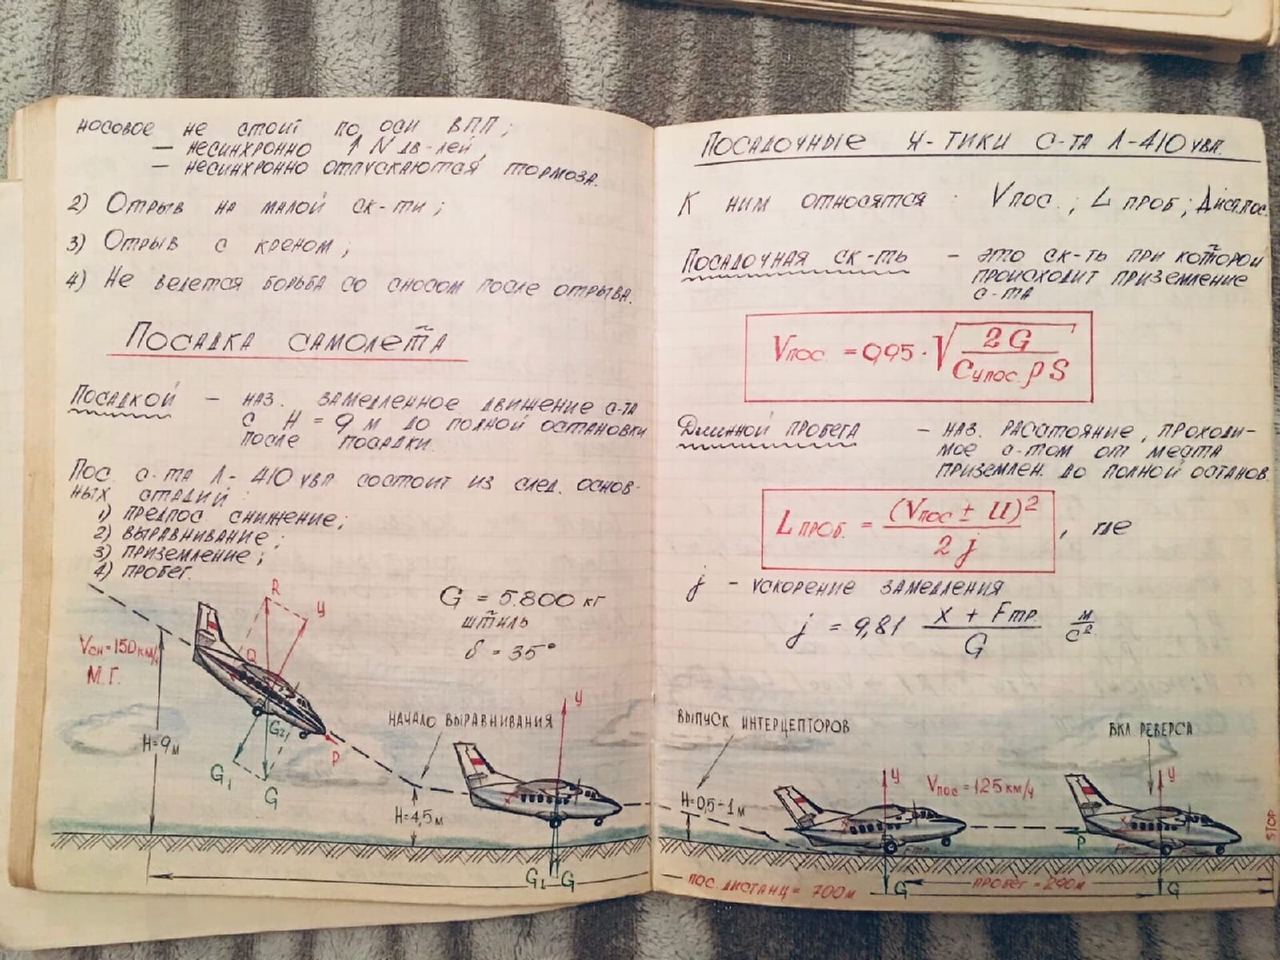 носовое не стоит по оси ВПП;
— несинхронно ↑ N дв-лей,
— несинхронно отпускаются тормоза.
2) Отрыв на малой ск-ти;
3) Отрыв с креном;
4) Не ведется борьба со сносом после отрыва.
Посадка самолета
Посадкой — наз. замедленное движение с-та
с H = 9 м до полной остановки
после посадки.
Пос. с-та Л-410 увп состоит из след. основ-
ных стадий:
1) предпос. снижение;
2) выравнивание;
3) приземление;
4) пробег.
G = 5.800 кг
штиль
δ = 35°
R
У
Vсн = 150 км/ч
М.Г.
Q
H = 9 м
G2
P
G1
G
начало выравнивания
У
H = 4,5 м
G1 G
Посадочные х-тики с-та Л-410 увп.
К ним относятся: Vпос.; L проб; Дист.пос.
Посадочная ск-ть — это ск-ть при которой
происходит приземление
с-та
Vпос. = 0,95 · √ 2G / Cупос. ρ S
Длинной пробега — наз. расстояние, проходи-
мое с-том от места
приземлен. до полной останов.
L проб. = (Vпос ± U)² / 2j , где
j — ускорение замедления
j = 9,81 X + Fтр. / G м/с²
выпуск интерцепторов
вкл реверса
У
Vпос = 125 км/ч
У
H = 0,5 - 1 м
P
STOP
Fтр
G
G
пос. дистанц = 700 м
пробег = 240 м